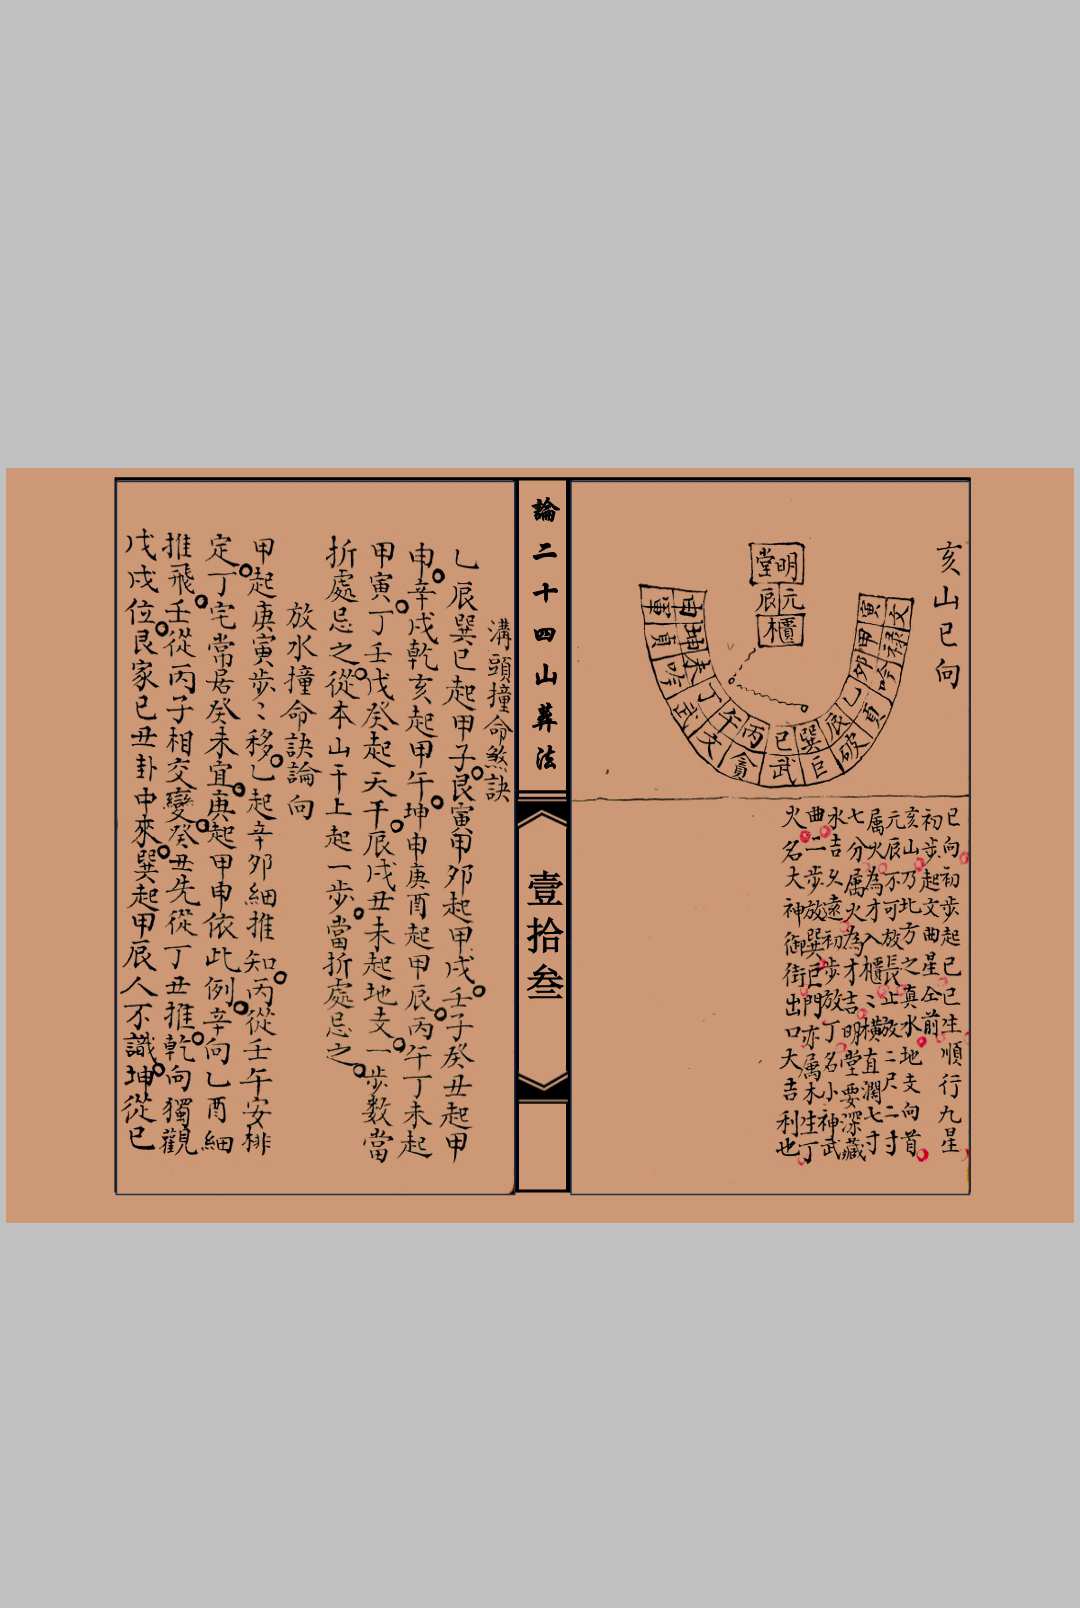 亥山巳向
明堂
元辰
櫃
文祿吟貢破巨武貪文武吟貢軍
寅甲卯乙辰巽巳丙午丁未坤申
巳向初步起巳巳生順行九星
初步起文曲星仝前
亥山乃北方之真水地支向首
元辰不可放長止放二尺二寸
属火為才入櫃〻橫直濶七寸
七分属火為才吉明堂要深藏
水吉久遠初步放丁名小神武
曲二步放巽巨門亦属木生丁
火名大神御街出口大吉利也
論二十四山葬法
壹拾叁
溝頭撞命煞訣
乙辰巽巳起甲子艮寅甲卯起甲戌壬子癸丑起甲
申辛戌乾亥起甲午坤申庚酉起甲辰丙午丁未起
甲寅丁壬戊癸起天干辰戌丑未起地支一步数當
折處忌之從本山干上起一步當折處忌之
放水撞命訣論向
甲起庚寅步〻移乙起辛卯細推知丙從壬午安排
定丁宅常居癸未宜庚起甲申依此例辛向乙酉細
推飛壬從丙子相交變癸丑先從丁丑推乾向獨觀
戊戌位艮家己丑卦中來巽起甲辰人不識坤從巳